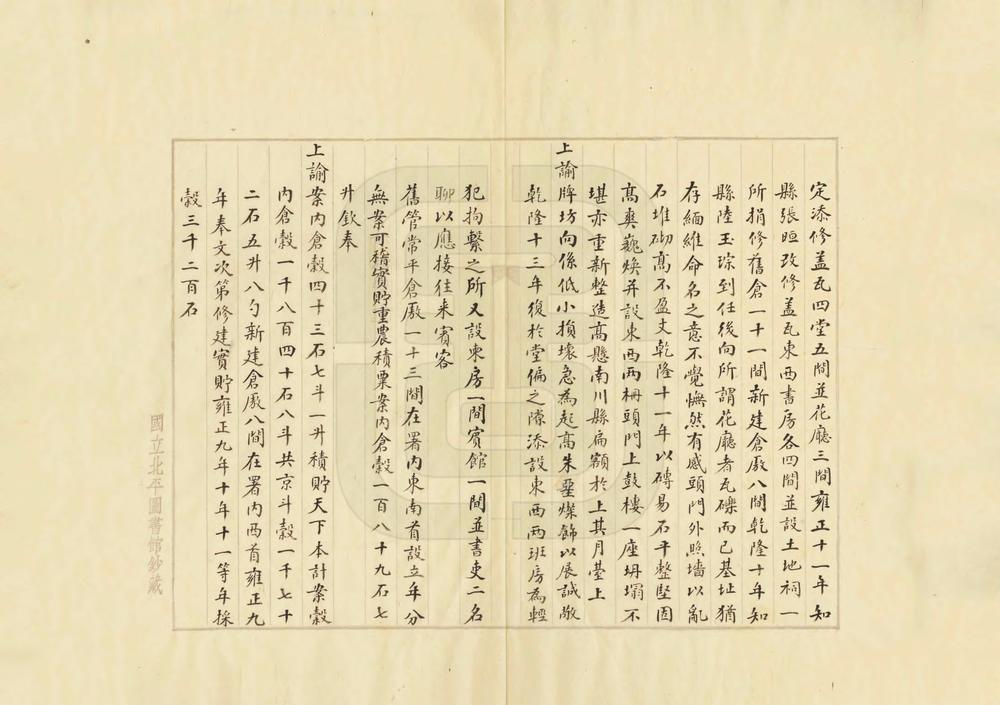 定添修蓋瓦四堂五間並花廳三間雍正十一年知
縣張晅改修蓋瓦東西書房各四間並設土地祠一
所捐修舊倉一十一間新建倉廒八間乾隆十年知
縣陸玉琮到任後向所謂花廳者瓦礫而已基址猶
存緬維命名之意不覺憮然有感頭門外照墻以亂
石堆砌高不盈丈乾隆十一年以磚易石平整堅固
高爽巍煥并設東西兩柵頭門上鼓樓一座坍塌不
堪亦重新整造高懸南川縣扁額於上其月臺上
上諭牌坊向係低小損壞急為起高朱堊燦飾以展誠敬
乾隆十三年復於堂偏之隙添設東西兩班房為輕
犯拘繫之所又設東房一間賓館一間並書吏二名
聊以應接往来賓客
舊管常平倉廒一十三間在署内東南首設立年分
無案可稽實貯重農積粟案内倉穀一百八十九石七
升欽奉
上諭案内倉穀四十三石七斗一升積貯天下本計案穀
内倉穀一千八百四十石八斗共京斗穀一千七十
二石五升八勺新建倉廒八間在署内西首雍正九
年奉文次第修建實貯雍正九年十年十一等年採
穀三千二百石
國立北平圖書館鈔藏